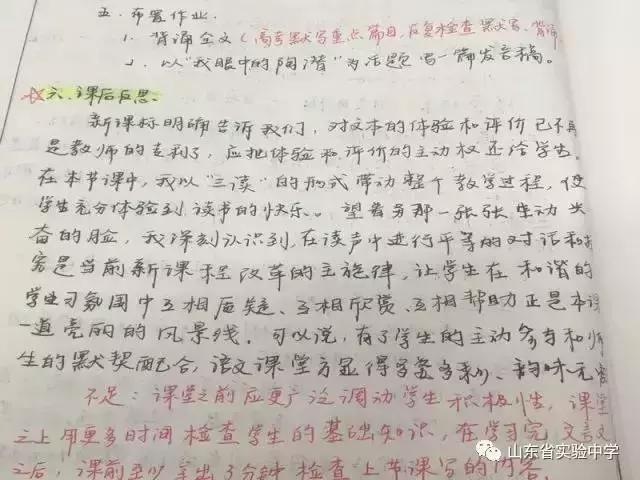 五.布置作业.
1. 背诵全文(高考默写重点篇目,反复检查默写、背诵
2. 以"我眼中的陶潜"为话题写一篇发言稿。
☆六.课后反思.
新课标明确告诉我们,对文本的体验和评价已不再
是教师的专利了,应把体验和评价的主动权还给学生。
在本节课中,我以"三读"的形式带动整个教学过程,使
学生充分体验到读书的快乐。望着那一张张生动兴
奋的脸,我深刻认识到,在读声中进行平等的对话和
是当前新课程改革的主旋律,让学生在和谐的
学习氛围中互相质疑、互相欣赏、互相帮助正是本课
一道亮丽的风景线。可以说,有了学生的主动参与和师
生的默契配合,语文课堂方显得异彩多彩、韵味无穷
不足:课堂之前应更广泛调动学生积极性,课堂
之上用更多时间检查学生的基础知识,在学习完文言文
之后,课前至少拿出3分钟检查上节课写的内容。
山东省实验中学